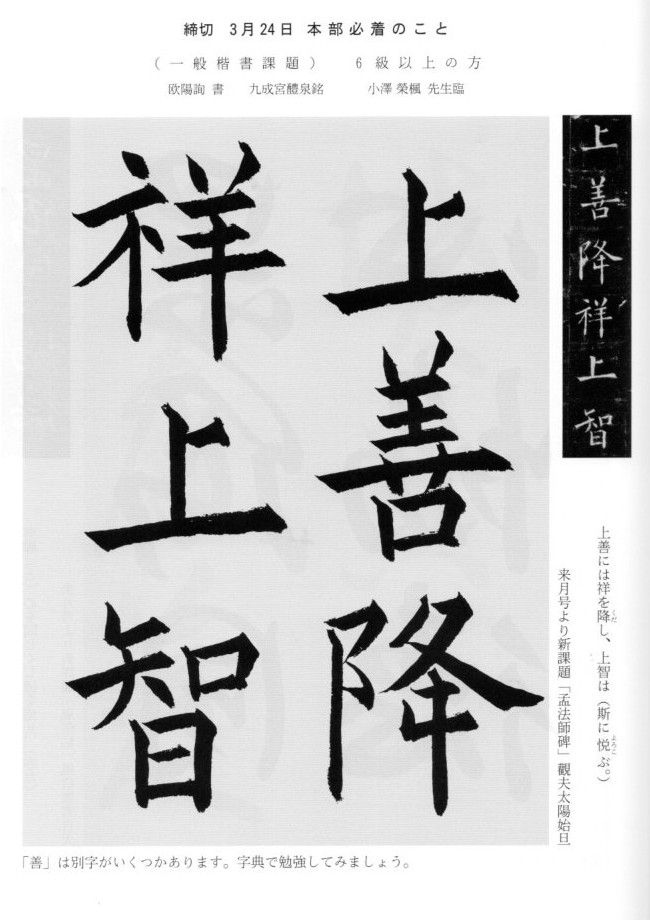 締切 3月24日 本部必着のこと
(一般楷書課題) 6級以上の方
欧陽詢 書 九成宮醴泉銘 小澤 榮楓 先生臨
上善降祥上智
上善降
祥上智
上善には祥を降くだし、上智は(斯に悦よろこぶ。)
来月号より新課題「孟法師碑」觀夫太陽始旦
「善」は別字がいくつかあります。字典で勉強してみましょう。